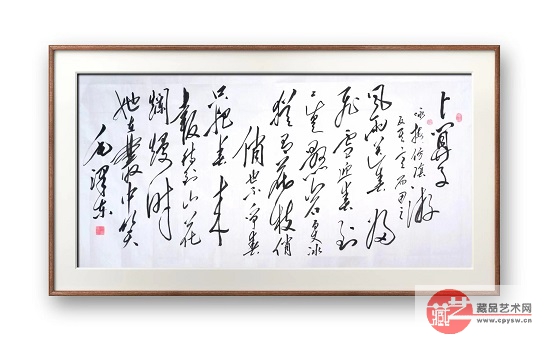 卜算子
咏梅 读陆游
反其意而用之
风雨送春归
飞雪迎春到
已是悬崖百丈冰
犹有花枝俏
俏也不争春
只把春来
報待到山花
烂漫时
她在丛中笑
毛泽东
藏艺
藏品艺术网
www.cpysw.cn